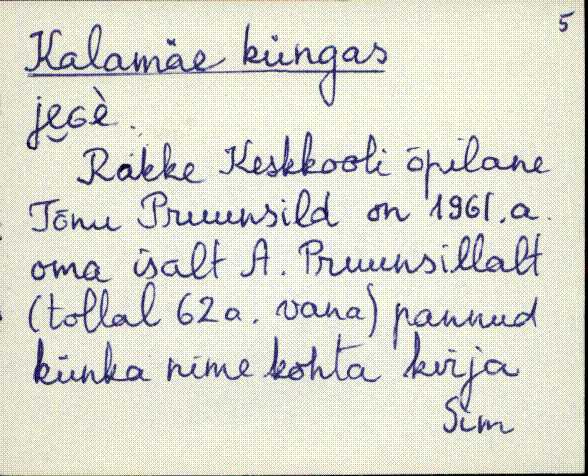 5
Kalamäe küngas
jegè.
Rakke Keskkooli õpilane
Tõnu Pruunsild on 1961. a.
oma isalt A. Pruunsillalt
(tollal 62 a. vana) pannud
künka nime kohta kirja
Sim